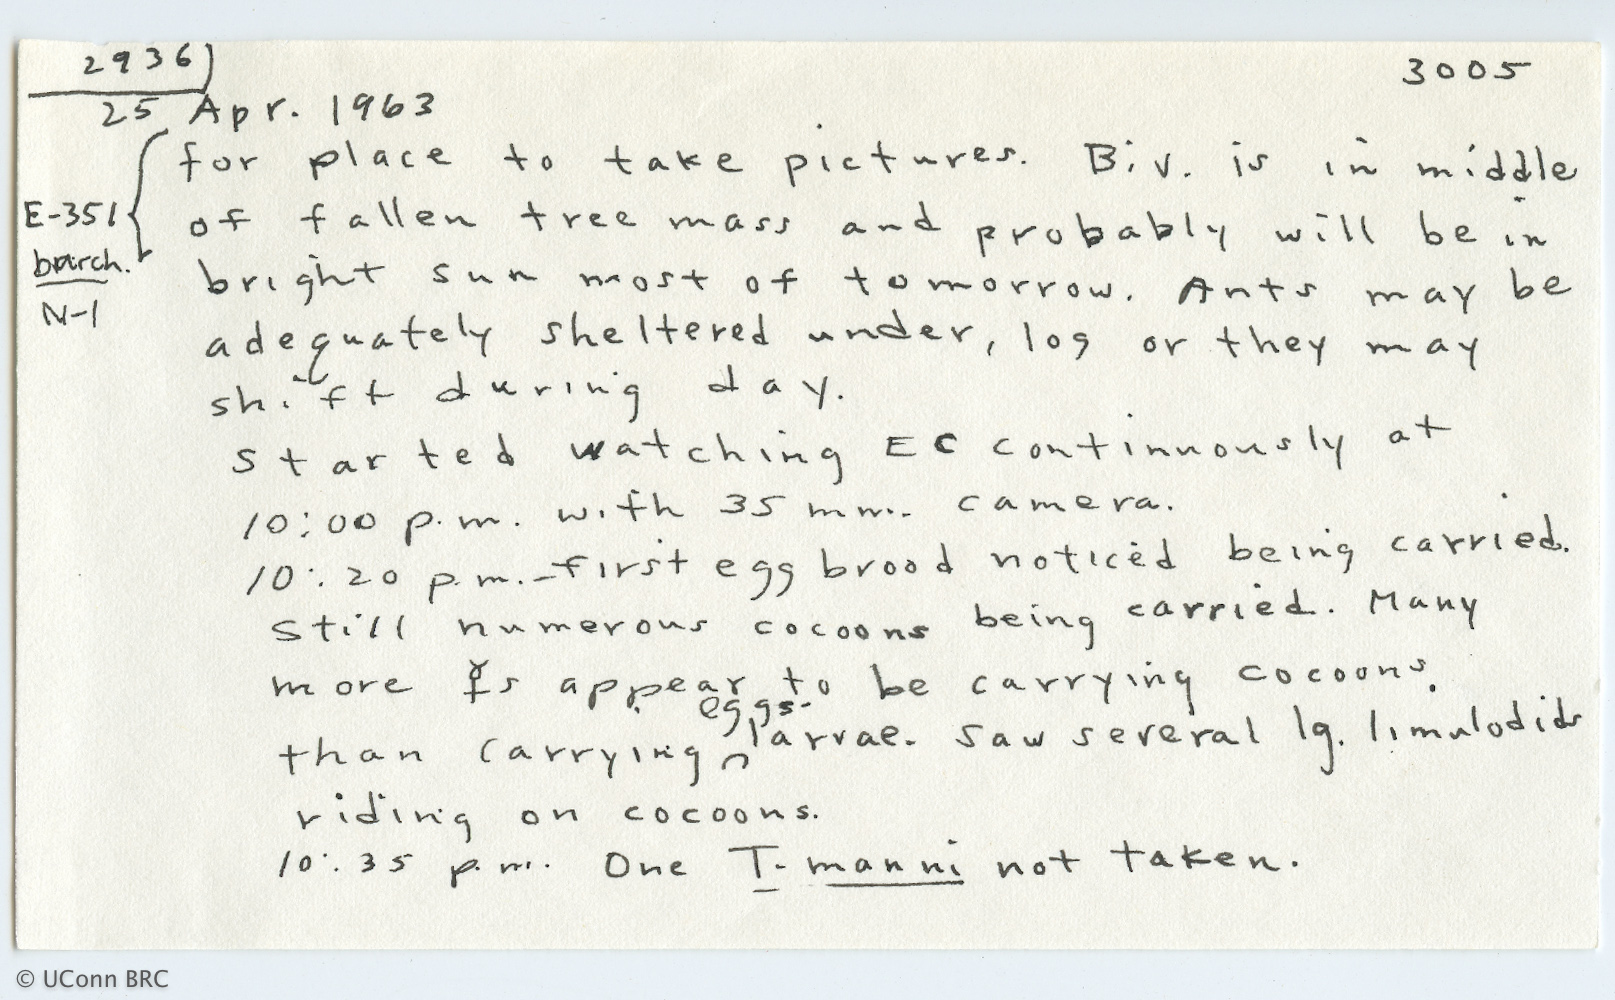 2936)
3005
25 Apr. 1963
for place to take pictures. Biv. is in middle
E-351
of fallen tree mass and probably will be in
burch.
bright sun most of tomorrow. Ants may be
N-1
adequately sheltered under, log or they may
shift during day.
Started watching EC continuously at
10:00 p.m. with 35 mm. camera.
10:20 p.m. - First egg brood noticed being carried.
Still numerous cocoons being carried. Many
more ☿s appear to be carrying cocoons.
eggs.
than carrying larvae. Saw several lg. limulodids
riding on cocoons.
10:35 p.m. One T. manni not taken.
© UConn BRC